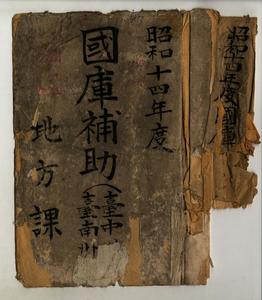 昭和十四年度
國庫補助(臺中
臺南州
地方課
昭和十四年度國庫